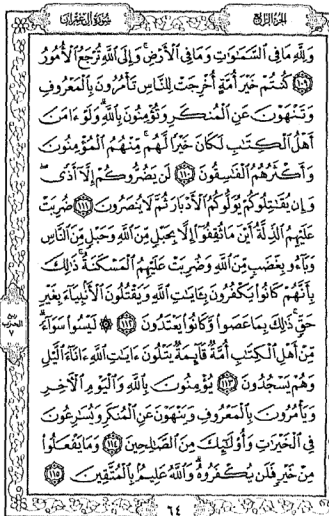 الجزء الرابع
سورة آل عمران
وَلِلَّهِ مَا فِي ٱلسَّمَٰوَٰتِ وَمَا فِي ٱلْأَرْضِ ۚ وَإِلَى ٱللَّهِ تُرْجَعُ ٱلْأُمُورُ
١٠٩ كُنتُمْ خَيْرَ أُمَّةٍ أُخْرِجَتْ لِلنَّاسِ تَأْمُرُونَ بِٱلْمَعْرُوفِ
وَتَنْهَوْنَ عَنِ ٱلْمُنكَرِ وَتُؤْمِنُونَ بِٱللَّهِ ۗ وَلَوْ ءَامَنَ
أَهْلُ ٱلْكِتَٰبِ لَكَانَ خَيْرًا لَّهُم ۚ مِّنْهُمُ ٱلْمُؤْمِنُونَ
وَأَكْثَرُهُمُ ٱلْفَٰسِقُونَ ١١٠ لَن يَضُرُّوكُمْ إِلَّآ أَذًى ۖ
وَإِن يُقَٰتِلُوكُمْ يُوَلُّوكُمُ ٱلْأَدْبَارَ ثُمَّ لَا يُنصَرُونَ ١١١ ضُرِبَتْ
عَلَيْهِمُ ٱلذِّلَّةُ أَيْنَ مَا ثُقِفُوٓا۟ إِلَّا بِحَبْلٍ مِّنَ ٱللَّهِ وَحَبْلٍ مِّنَ ٱلنَّاسِ
وَبَآءُو بِغَضَبٍ مِّنَ ٱللَّهِ وَضُرِبَتْ عَلَيْهِمُ ٱلْمَسْكَنَةُ ۚ ذَٰلِكَ
بِأَنَّهُمْ كَانُوا۟ يَكْفُرُونَ بِـَٔايَٰتِ ٱللَّهِ وَيَقْتُلُونَ ٱلْأَنۢبِيَآءَ بِغَيْرِ
حَقٍّ ۚ ذَٰلِكَ بِمَا عَصَوا۟ وَّكَانُوا۟ يَعْتَدُونَ ١١٢ ۞ لَيْسُوا۟ سَوَآءً ۗ
مِّنْ أَهْلِ ٱلْكِتَٰبِ أُمَّةٌ قَآئِمَةٌ يَتْلُونَ ءَايَٰتِ ٱللَّهِ ءَانَآءَ ٱلَّيْلِ
وَهُمْ يَسْجُدُونَ ١١٣ يُؤْمِنُونَ بِٱللَّهِ وَٱلْيَوْمِ ٱلْءَاخِرِ
وَيَأْمُرُونَ بِٱلْمَعْرُوفِ وَيَنْهَوْنَ عَنِ ٱلْمُنكَرِ وَيُسَٰرِعُونَ
فِي ٱلْخَيْرَٰتِ وَأُو۟لَٰٓئِكَ مِنَ ٱلصَّٰلِحِينَ ١١٤ وَمَا يَفْعَلُوا۟
مِنْ خَيْرٍ فَلَن يُكْفَرُوهُ ۗ وَٱللَّهُ عَلِيمٌۢ بِٱلْمُتَّقِينَ ١١٥
٦٤